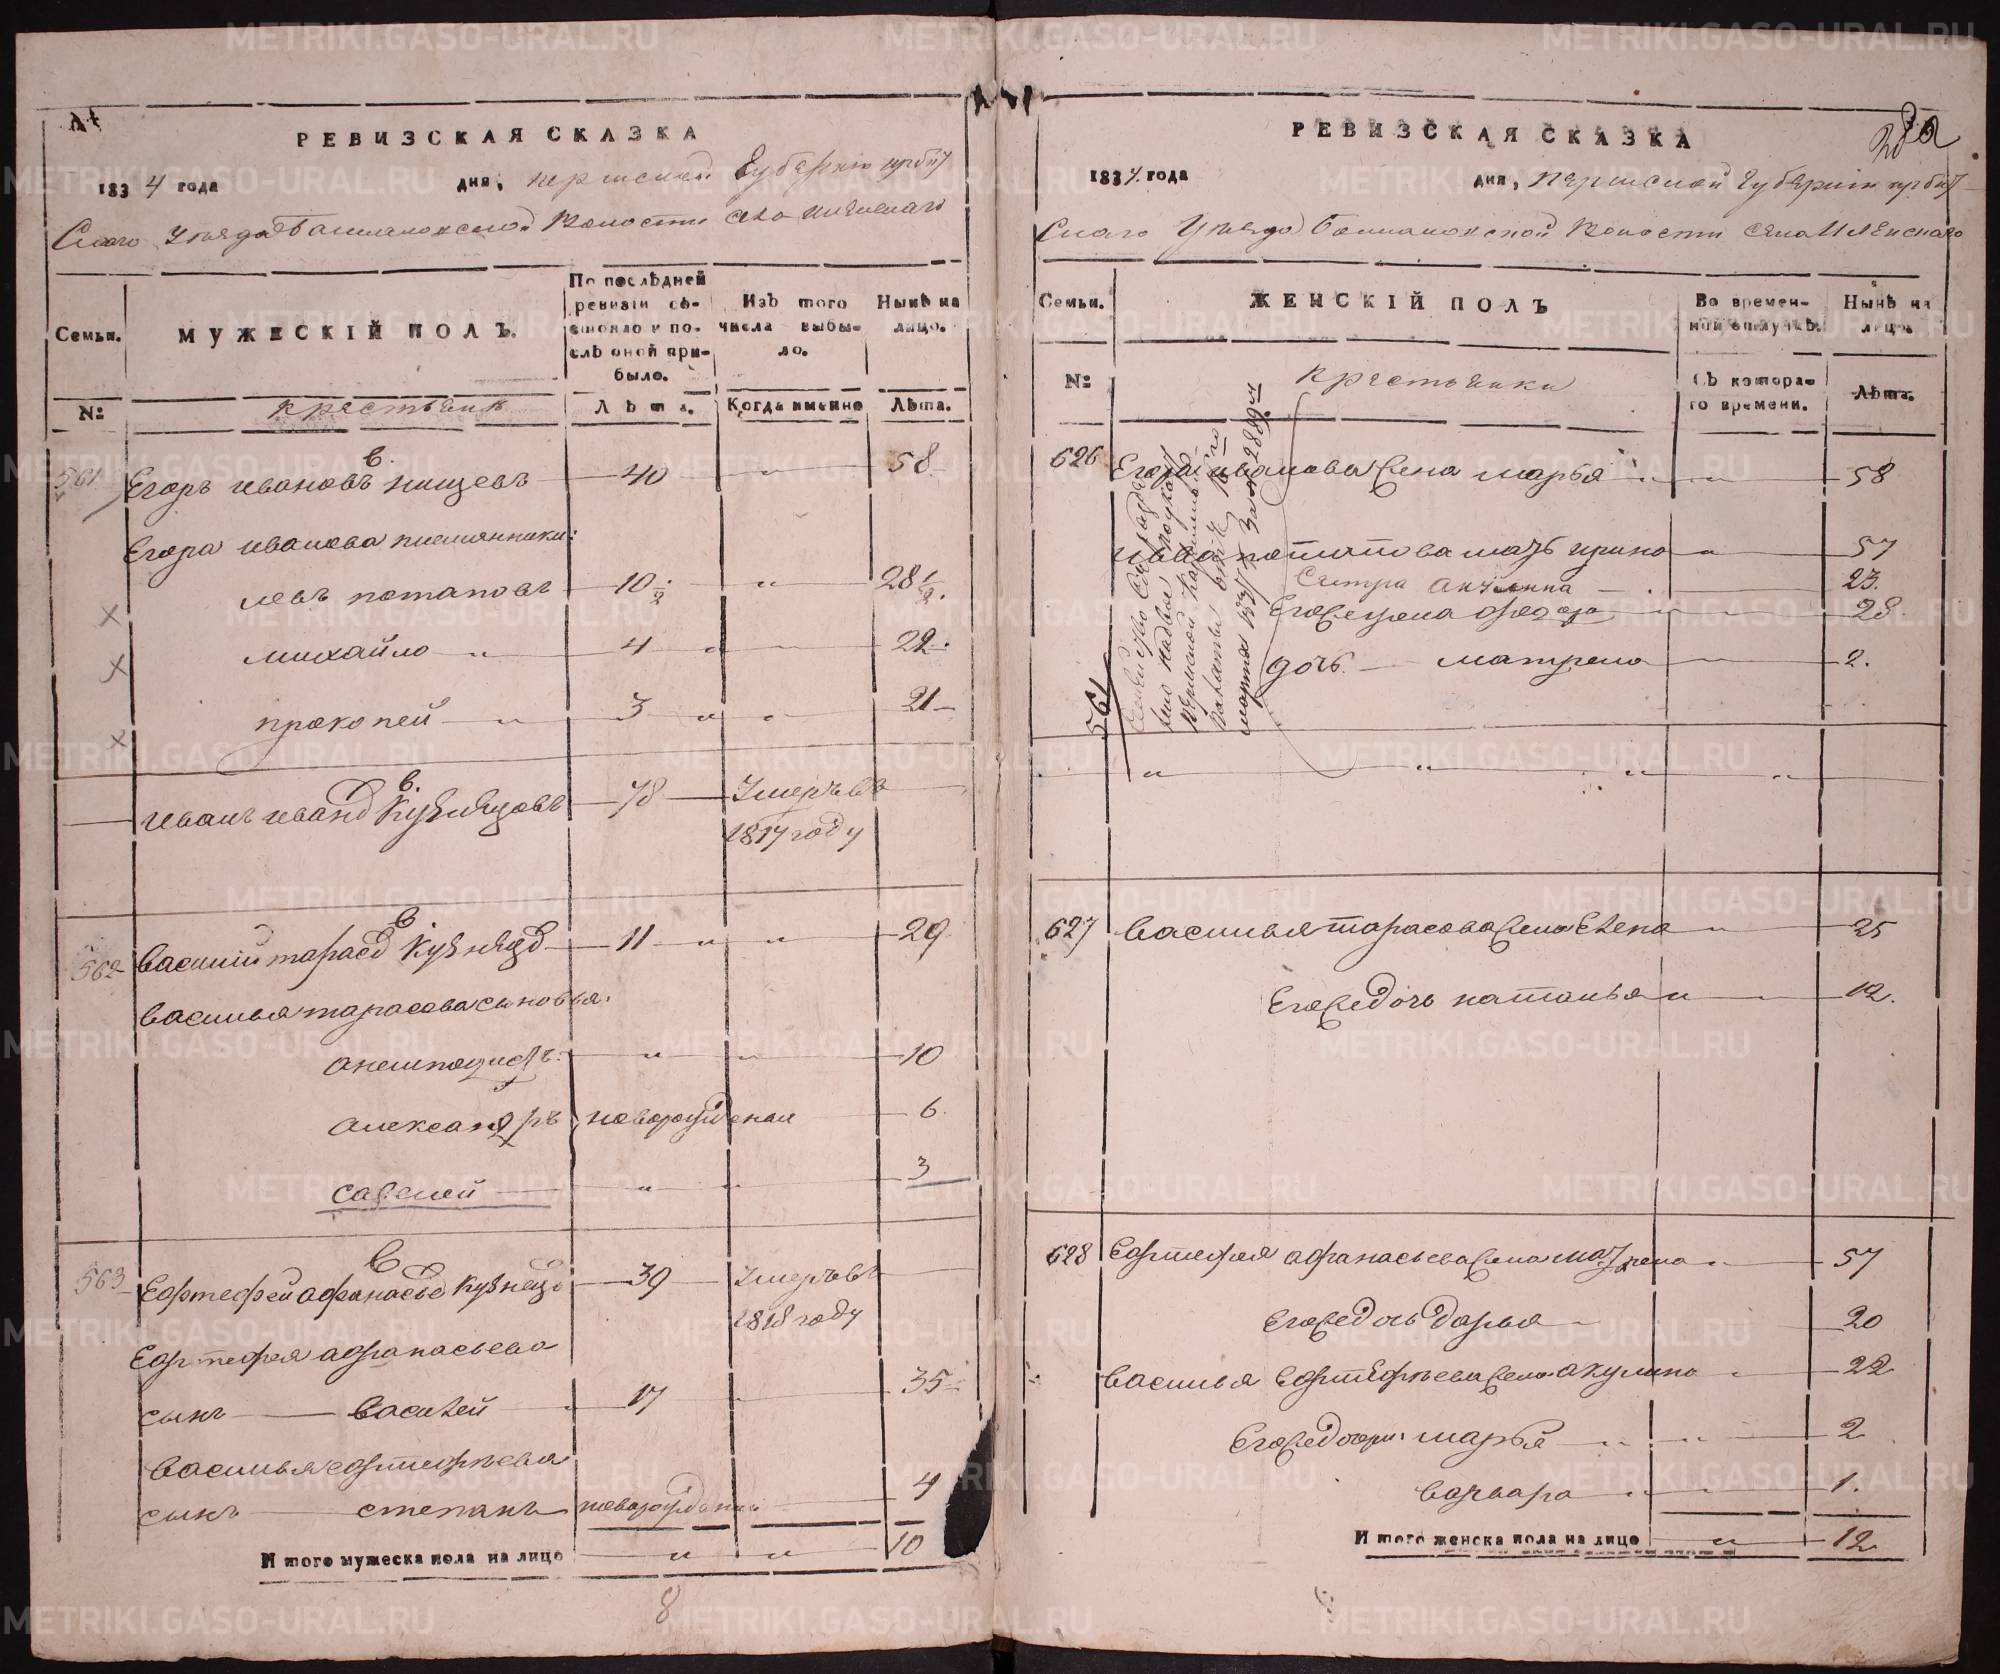 РЕВИЗСКАЯ СКАЗКА
1834 года дня, пермской Губернии ирбит
Скаго Уезда Башмаковской Волости
Семьи.
МУЖЕСКІЙ ПОЛЪ.
По послѣдней ревизіи состояло и послѣ оной прибыло.
Изъ того числа выбыло.
Нынѣ на лицо.
№ крестьяне Лѣта. Когда именно Лѣта.
в.
561 Егоръ ивановъ нищевъ 40 „ 58
Егора иванова племянники:
левъ потаповъ 10 1/2 „ 28 1/2.
михайло „ 4 „ „ 22.
прокопей „ 3 „ „ 21
в.
иванъ иванов Кузнецовъ 78 Умеръ въ
1817 году
в.
562 василий тарасов Кузнецов 11 „ „ 29
василья тарасова сыновья:
„ „ 10
александръ новорожденные 6
савелей „ „ 3
в
563 Ефтефей афанасьев Кузнецов 39 Умеръ въ
1818 году
Ефтефея афанасьева
сынъ василей „ 17 „ 35
василья ефтефьева
сынъ степанъ новорожденный 4
И того мужеска пола на лицо „ „ 10
8
РЕВИЗСКАЯ СКАЗКА
1834 года дня, пермской губернии ирбит
Скаго Уезда Башмаковской Волости села
Семьи.
ЖЕНСКІЙ ПОЛЪ
Во временной отлучкѣ.
Нынѣ на лицо
№ крестьянки Съ котораго времени. Лѣта.
626 Егора иванова жена марья „ „ 58
потапова мать ирина „ 57
Сестра акулина 23.
Его же жена федора „ „ 28
дочь матрена „ 2.
561
„ „ „ „
627 василья тарасова жена елена „ 25
Его же дочь наталья „ „ 12.
628 Ефтефея афанасьева жена матрена „ 57
Его же дочь дарья 20
василья Ефтефьева жена акулина „ 22
Его же дочери: марья „ „ 2
варвара „ „ 1.
И того женска пола на лицо „ 12
METRIKI.GASO-URAL.RU